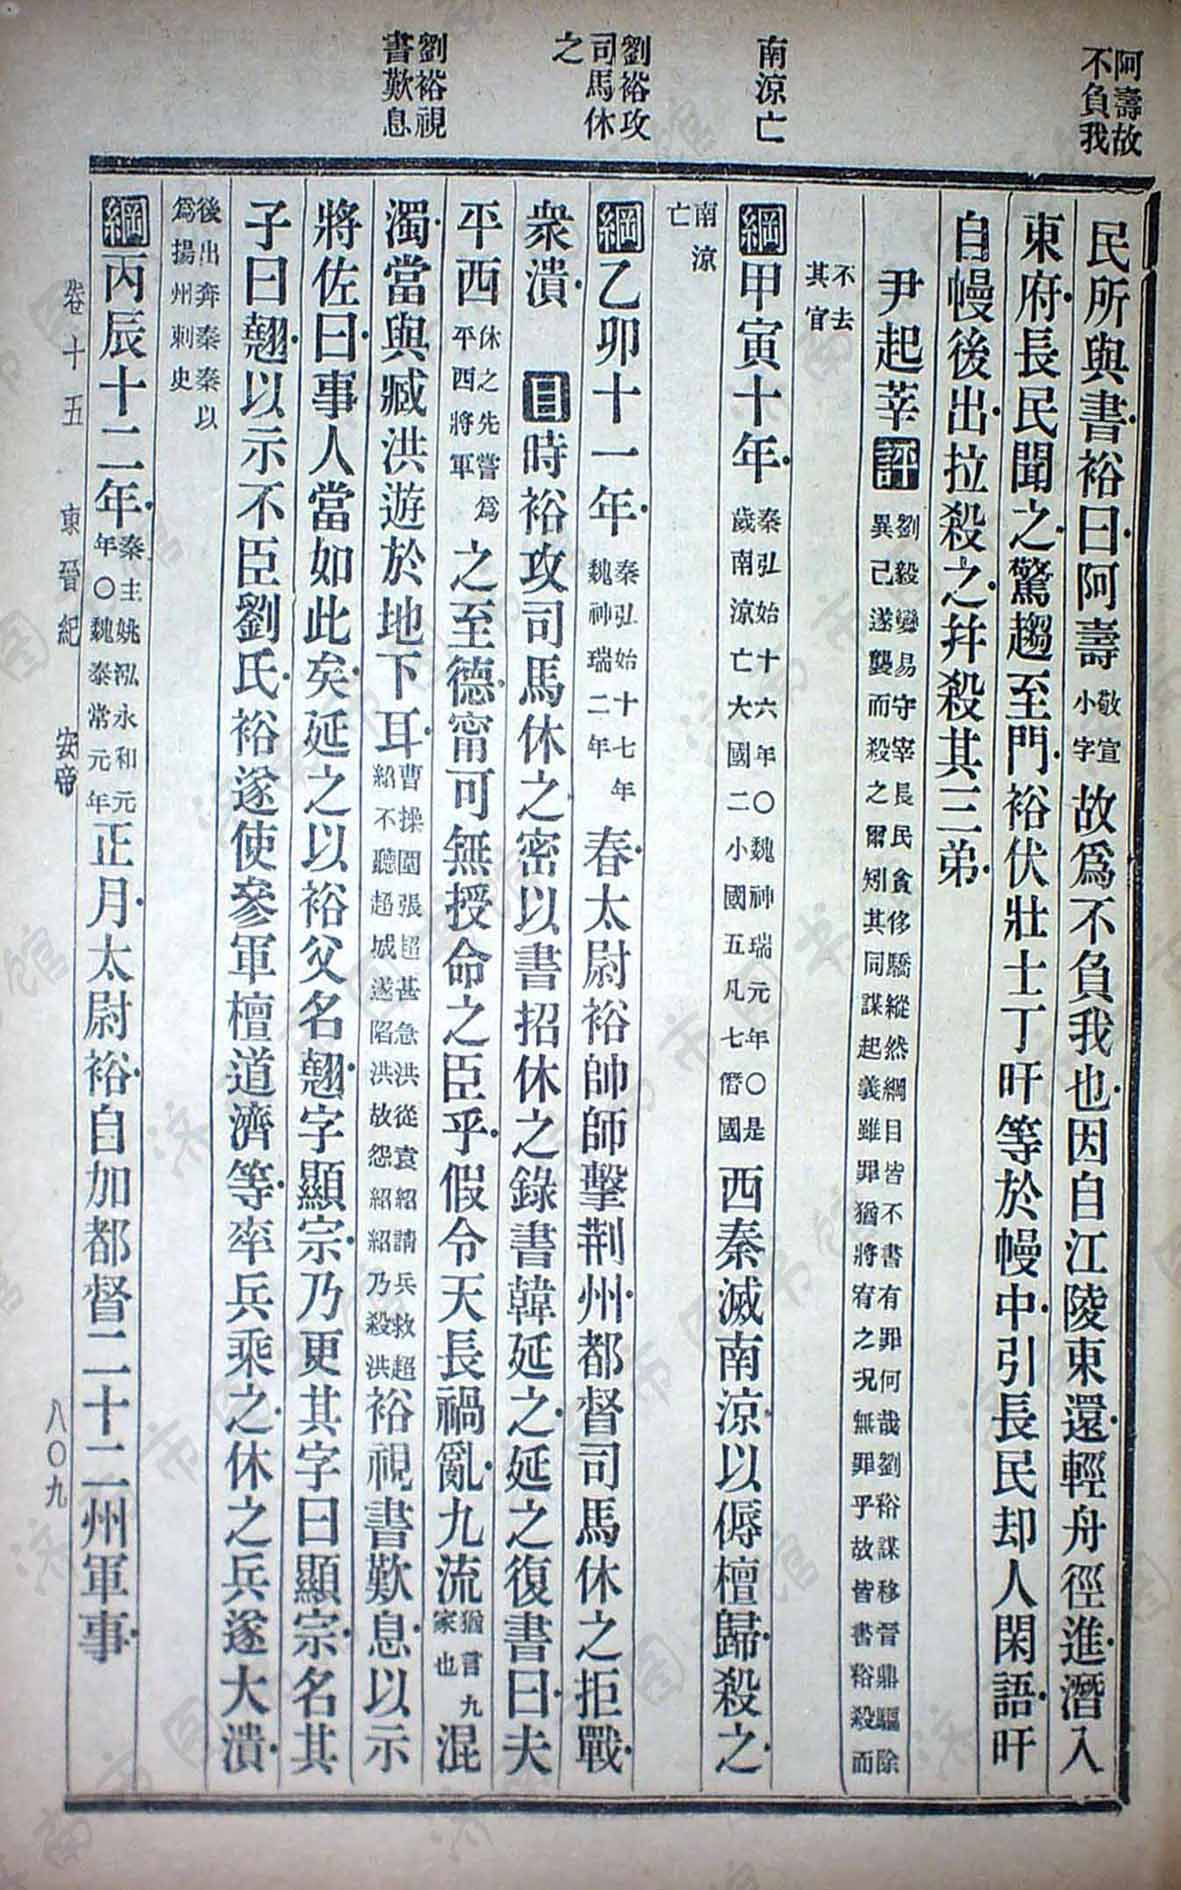 阿壽故
不負我
南涼亡
劉裕攻
司馬休
之
劉裕視
書歎息
民所與書裕曰阿壽敬宣小字故爲不負我也因自江陵東還輕舟徑進潛入
東府長民聞之驚趨至門裕伏壯士丁旿等於幔中引長民却人閑語旿
自幔後出拉殺之并殺其三弟
尹起莘評劉毅變易守宰長民貪侈驕縱然綱目皆不書有罪何哉劉裕謀移晉鼎驅除
異己遂襲而殺之爾矧其同謀起義雖罪猶將宥之况無罪乎故皆書裕殺而
不去
其官
綱甲寅十年秦弘始十六年〇魏神瑞元年〇是
歲南涼亡大國二小國五凡七僭國西秦滅南涼以傉檀歸殺之
南涼
亡
綱乙卯十一年秦弘始十七年
魏神瑞二年春太尉裕帥師擊荆州都督司馬休之拒戰
衆潰 目時裕攻司馬休之密以書招休之錄書韓延之延之復書曰夫
平西休之先嘗爲
平西將軍之至德甯可無授命之臣乎假令天長禍亂九流猶言九
家也混
濁當與臧洪遊於地下耳曹操圍張超甚急洪從袁紹請兵救超
紹不聽超城遂陷洪故怨紹紹乃殺洪裕視書歎息以示
將佐曰事人當如此矣延之以裕父名翹字顯宗乃更其字曰顯宗名其
子曰翹以示不臣劉氏裕遂使參軍檀道濟等率兵乘之休之兵遂大潰
後出奔秦秦以
爲揚州刺史
綱丙辰十二年秦主姚泓永和元
年〇魏泰常元年正月太尉裕自加都督二十二州軍事
卷十五 東晉紀 安帝 八〇九